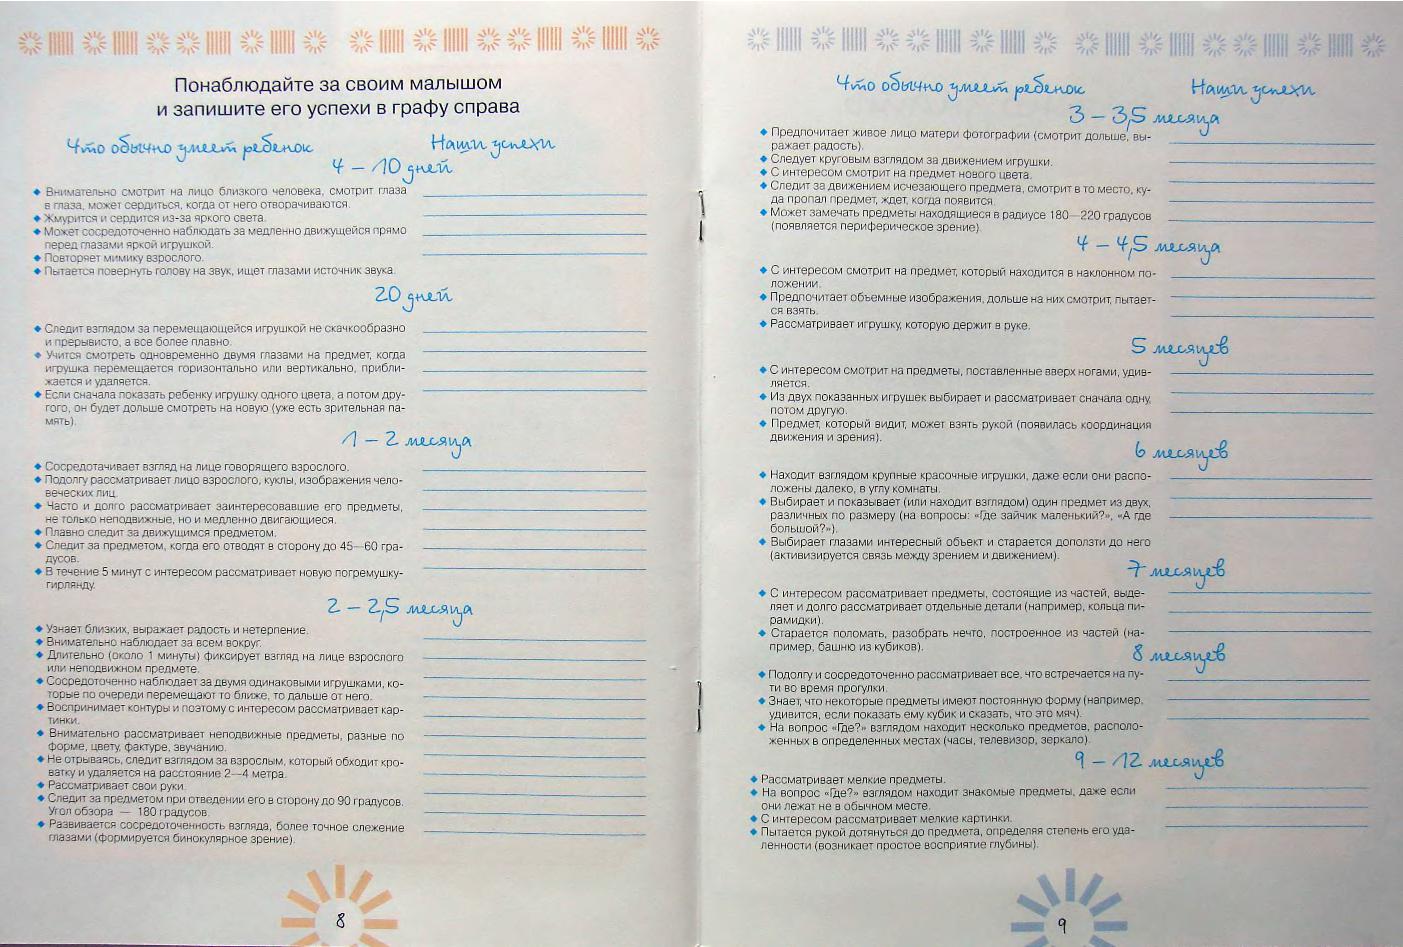 Понаблюдайте за своим малышом
и запишите его успехи в графу справа
Что обычно умеет ребенок
Наши успехи
4 – 10 дней
Внимательно смотрит на лицо близкого человека, смотрит глаза
в глаза, может сердиться, когда от него отворачиваются.
Жмурится и сердится из-за яркого света.
Может сосредоточенно наблюдать за медленно движущейся прямо
перед глазами яркой игрушкой.
Повторяет мимику взрослого.
Пытается повернуть голову на звук, ищет глазами источник звука.
20 дней
Следит взглядом за перемещающейся игрушкой не скачкообразно
и прерывисто, а все более плавно.
Учится смотреть одновременно двумя глазами на предмет, когда
игрушка перемещается горизонтально или вертикально, прибли-
жается и удаляется.
Если сначала показать ребенку игрушку одного цвета, а потом дру-
гого, он будет дольше смотреть на новую (уже есть зрительная па-
мять).
1 – 2 месяца
Сосредотачивает взгляд на лице говорящего взрослого.
Подолгу рассматривает лицо взрослого, куклы, изображения чело-
веческих лиц.
Часто и долго рассматривает заинтересовавшие его предметы,
не только неподвижные, но и медленно двигающиеся.
Плавно следит за движущимся предметом.
Следит за предметом, когда его отводят в сторону до 45—60 гра-
дусов.
В течение 5 минут с интересом рассматривает новую погремушку-
гирлянду.
2 – 2,5 месяца
Узнает близких, выражает радость и нетерпение.
Внимательно наблюдает за всем вокруг.
Длительно (около 1 минуты) фиксирует взгляд на лице взрослого
или неподвижном предмете.
Сосредоточенно наблюдает за двумя одинаковыми игрушками, ко-
торые по очереди перемещают то ближе, то дальше от него.
Воспринимает контуры и поэтому с интересом рассматривает кар-
тинки.
Внимательно рассматривает неподвижные предметы, разные по
форме, цвету, фактуре, звучанию.
Не отрываясь, следит взглядом за взрослым, который обходит кро-
ватку и удаляется на расстояние 2—4 метра.
Рассматривает свои руки.
Следит за предметом при отведении его в сторону до 90 градусов.
Угол обзора — 180 градусов.
Развивается сосредоточенность взгляда, более точное слежение
глазами (формируется бинокулярное зрение).
8
Что обычно умеет ребенок
Наши успехи
3 – 3,5 месяца
Предпочитает живое лицо матери фотографии (смотрит дольше, вы-
ражает радость).
Следует круговым взглядом за движением игрушки.
С интересом смотрит на предмет нового цвета.
Следит за движением исчезающего предмета, смотрит в то место, ку-
да пропал предмет, ждет, когда появится.
Может замечать предметы находящиеся в радиусе 180—220 градусов
(появляется периферическое зрение).
4 – 4,5 месяца
С интересом смотрит на предмет, который находится в наклонном по-
ложении.
Предпочитает объемные изображения, дольше на них смотрит, пытает-
ся взять.
Рассматривает игрушку, которую держит в руке.
5 месяцев
С интересом смотрит на предметы, поставленные вверх ногами, удив-
ляется.
Из двух показанных игрушек выбирает и рассматривает сначала одну,
потом другую.
Предмет, который видит, может взять рукой (появилась координация
движения и зрения).
6 месяцев
Находит взглядом крупные красочные игрушки, даже если они распо-
ложены далеко, в углу комнаты.
Выбирает и показывает (или находит взглядом) один предмет из двух,
различных по размеру (на вопросы: «Где зайчик маленький?», «А где
большой?»).
Выбирает глазами интересный объект и старается доползти до него
(активизируется связь между зрением и движением).
7 месяцев
С интересом рассматривает предметы, состоящие из частей, выде-
ляет и долго рассматривает отдельные детали (например, кольца пи-
рамидки).
Старается поломать, разобрать нечто, построенное из частей (на-
пример, башню из кубиков).
8 месяцев
Подолгу и сосредоточенно рассматривает все, что встречается на пу-
ти во время прогулки.
Знает, что некоторые предметы имеют постоянную форму (например,
удивится, если показать ему кубик и сказать, что это мяч).
На вопрос «Где?» взглядом находит несколько предметов, располо-
женных в определенных местах (часы, телевизор, зеркало).
9 – 12 месяцев
Рассматривает мелкие предметы.
На вопрос «Где?» взглядом находит знакомые предметы, даже если
они лежат не в обычном месте.
С интересом рассматривает мелкие картинки.
Пытается рукой дотянуться до предмета, определяя степень его уда-
ленности (возникает простое восприятие глубины).
9